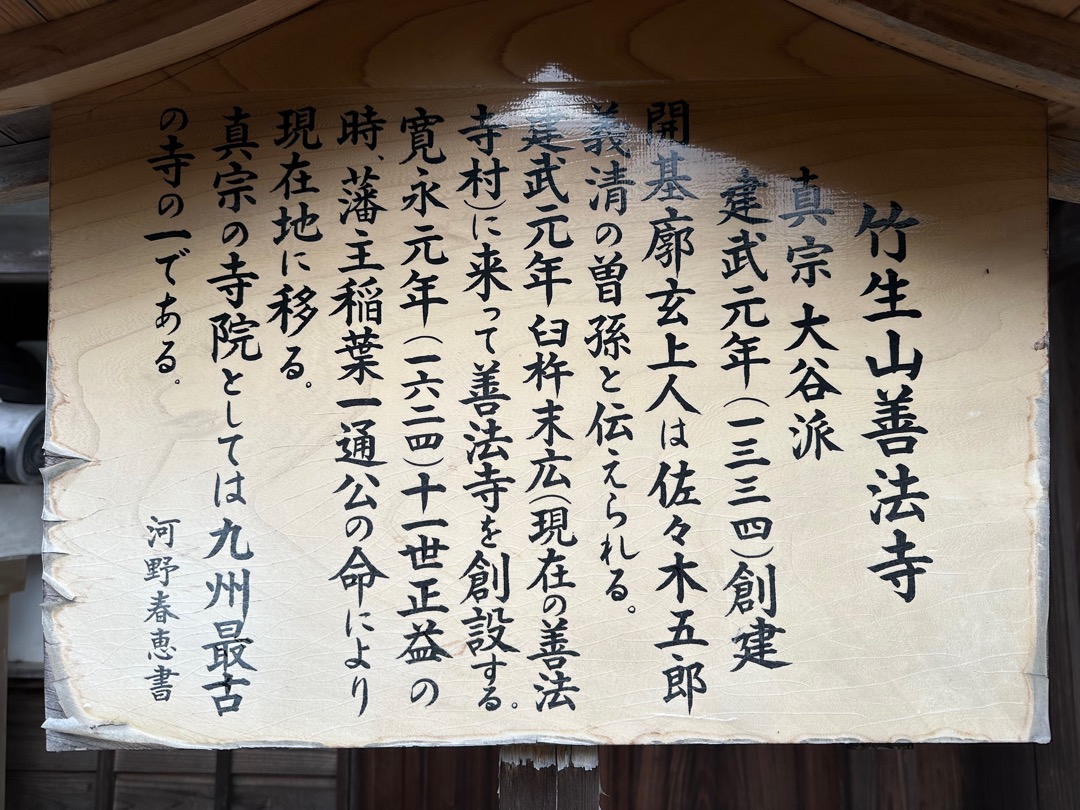 竹生山善法寺
真宗 大谷派
建武元年(一三三四)創建
開基廓玄上人は佐々木五郎
義清の曽孫と伝えられる。
建武元年臼杵末広(現在の善法
寺村)に来って善法寺を創設する。
寛永元年(一六二四)十一世正益の
時、藩主稲葉一通公の命により
現在地に移る。
真宗の寺院としては九州最古
の寺の一である。
河野春恵書